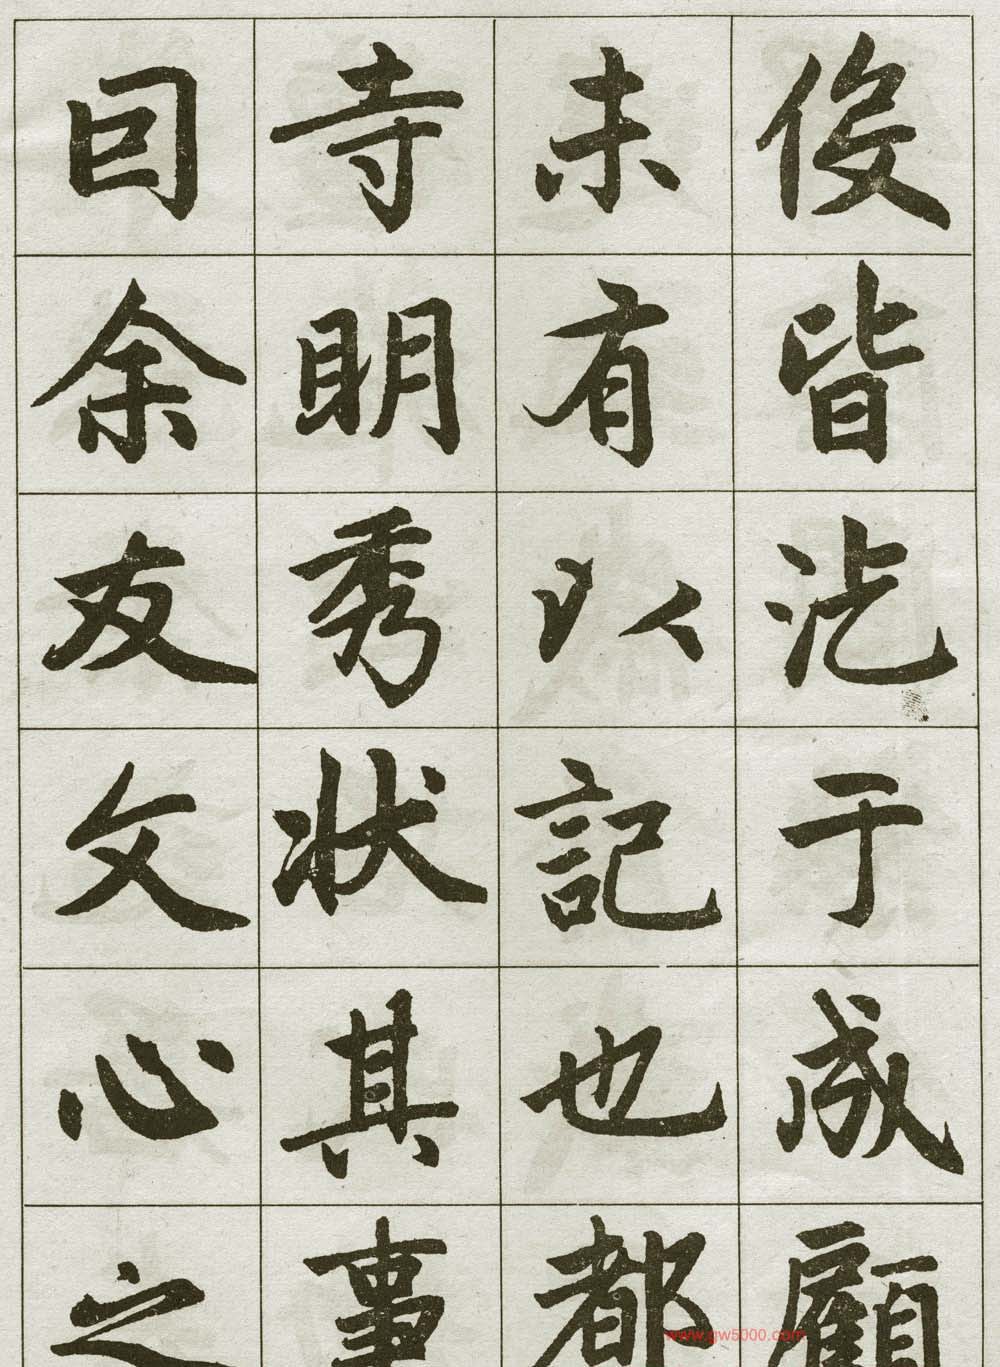 役皆汔于成顧
未有以記也都
寺明秀狀其事
因余友文心之
www.gw5000.com